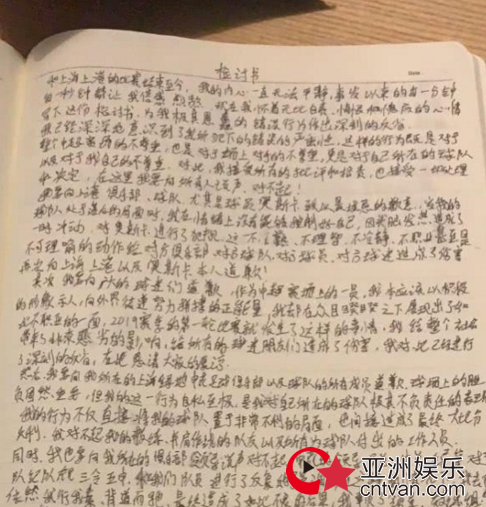 检讨书
Date.
和上海上港的比赛结束至今,我的内心一直无法平静,事发以来的每一分钟
每一秒钟都让我倍感煎熬,现在我怀着无比自责、悔恨和愧疚的心情
写下这份检讨书,为我极其愚蠢的错误行为作出深刻的反省。
我已经深深地意识到了我所犯下的错误的严重性,这样的行为既是对于
的不尊重,也是对于场上对手的不尊重,更是对于自己所在的球队
以及对于我自己的不尊重,对此,我接受所有的批评和指责,也接受一切处理
和决定,在这里我要向所有人说声,对不起!
我要向上海 俱乐部、球队,尤其是球员奥斯卡 致以最诚恳的歉意,当我的
球队处于落后的局面时,我在情绪上没有能够控制好自己,因头脑发热造成了
一时冲动,对奥斯卡进行了犯规,这一不 、不理智、不冷静、不职业甚至是
不可理喻的动作给对方俱乐部、对方球队、对方球员、对方球迷造成了伤害
向上海上港以及奥斯卡本人道歉!
其次我要向 的球迷们道歉,作为中超赛场上的一员,我本应该以积极
的 示人,向外界传递努力拼搏的正能量,我却在众目睽睽之下展现出了如
此不职业的一面,2019赛季的第一轮比赛就发生了这样的事情,我给整个社会
带来了非常恶劣的影响,给所有的球迷朋友们造成了伤害,我对此已经进行
了深刻的反省,在此恳请大家的原谅。
我要向我所在的上海绿地申花足球俱乐部以及球队的所有成员道歉,球场上的胜
负固然重要,但我的这一行为自私至极,是我对自己所在的球队极其不负责任的表现
我的行为不仅直接将我的球队置于非常不利的局面,也间接造成了最终大比分
失利,我对不起我的教练、并肩作战的队友以及所有为球队付出的工作人员。
同时,我也要向我所在的俱乐部领导说声对不起
队纪队规三令五申,和我们队员进行了反复
任然我行我素、背道而驰,最终造成了如此不良的后果
亚洲娱乐
cntvan.com